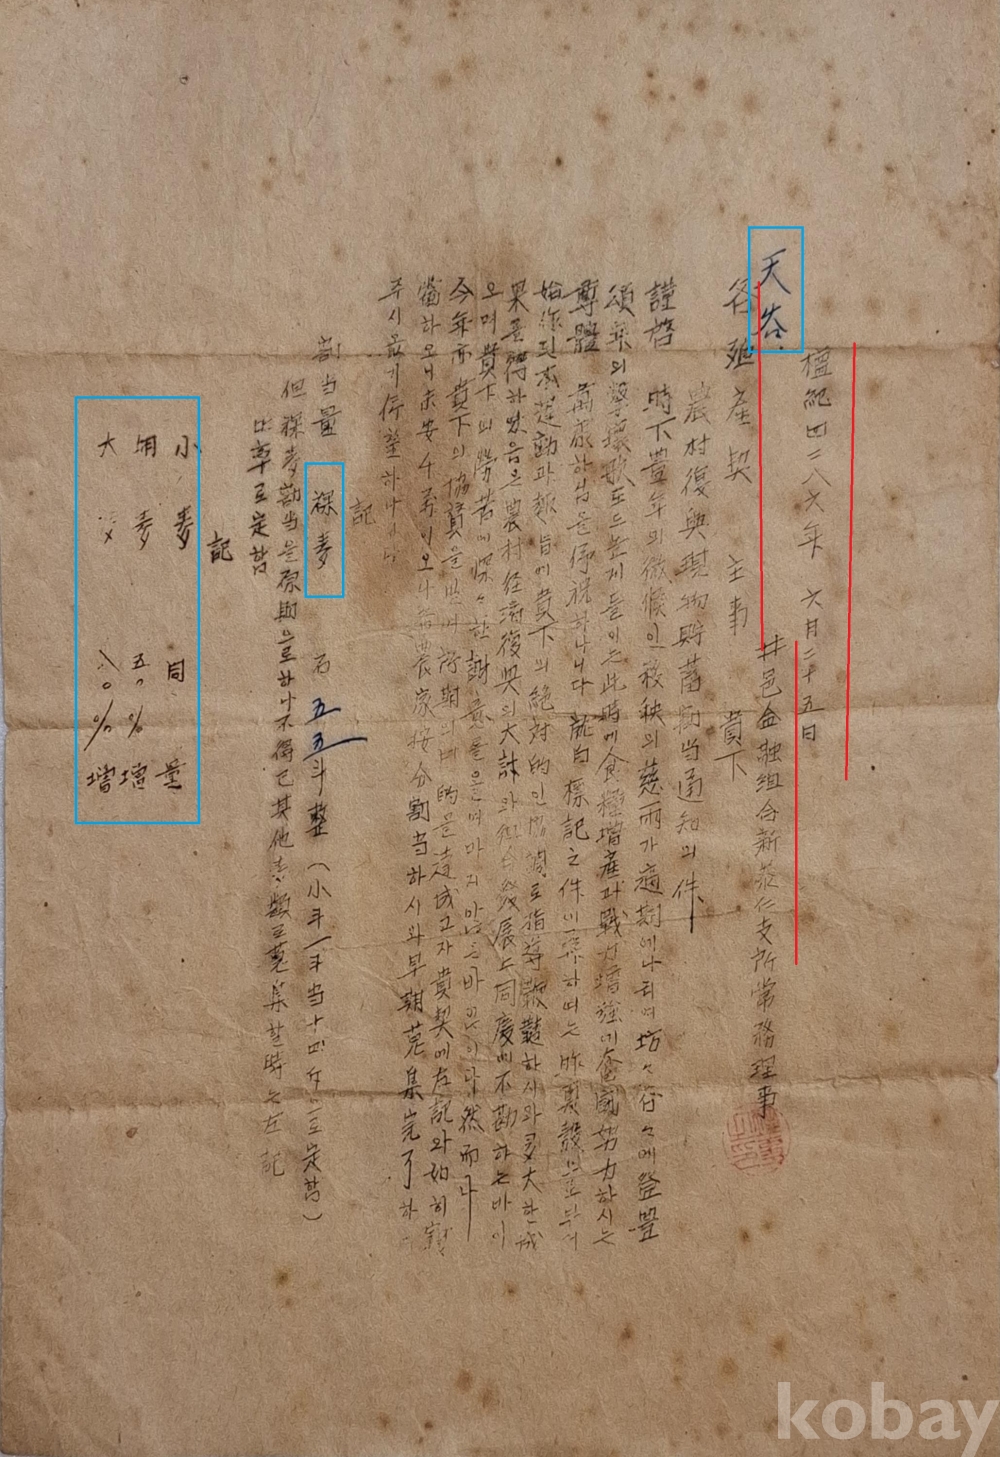 檀紀四二八六年 六月二十五日
井邑金融組合新泰仁支所常務理事
天谷
各殖産契 主事 貴下
農村復興現物貯蓄割当通知의件
謹啓 時下豊年의徵候인 秧의慈雨가適期에나리여坊々谷々에登豊
頌年의擊壤歌도드높게들이는此時에食糧增産과戰力增强에奮鬪努力하시는
尊體 萬 하심을仰祝하나니다 就白 標記之件
始作된本運動과趣旨에貴下의絶対的인協調로指導鞭韃하시와多大한成
果를得하였음은農村経済復興의大計와 発展上同慶에不勘하는바이
오며貴下의労苦에深々한謝意를 마지 바 이다 然而나
今年亦貴下의協賛을 어所期의目的을達成고자貴契에左記와如히
當하오니未安 이오나各農家按分割当하시와早期蒐集完了하
주시옵기仰望하나이다
記
割当量 裸麥 石 五五斗整(小斗一斗当十四斤으로定함)
但裸麥割当을原則으로하나不得已其他麦類로蒐集할時는左記
比率로定함
記
小麥 同量
胡麥 五〇%增
大麥 一〇〇%增
kobay